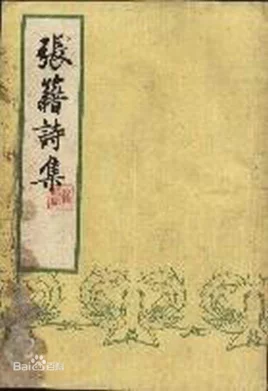 張籍詩集
Baidu百科